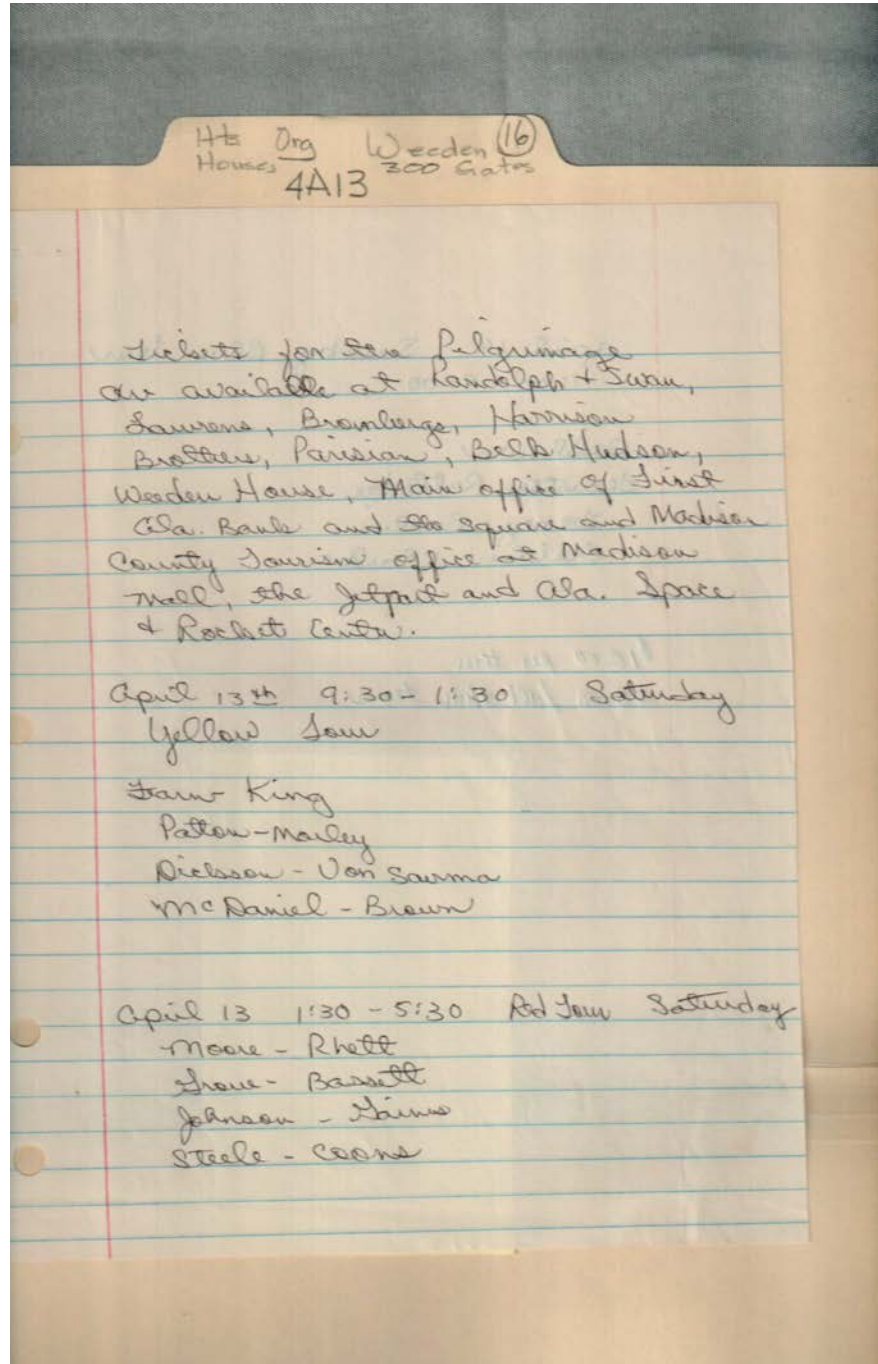 Hts Org Weeden 16
Houses 300 Gates
4A13
Tickets for the Pilgrimage
are available at Randolph + Swan,
Laurens, Brombergs, Harrison
Brothers, Parisian, Belk Hudson,
Weeden House, Main office of First
Ala. Bank and the square and Madison
County Tourism office at Madison
Mall, the Jetport and Ala. Space
& Rocket Center.
April 13th 9:30 - 1:30 Saturday
Yellow Tour
King
Patton-
Dickson - Von Saurma
McDaniel - Brown
April 13 1:30 - 5:30 Red Tour Saturday
Moore - Rhett
Grove - Bassett
Johnson - Gaines
Steele - Coons